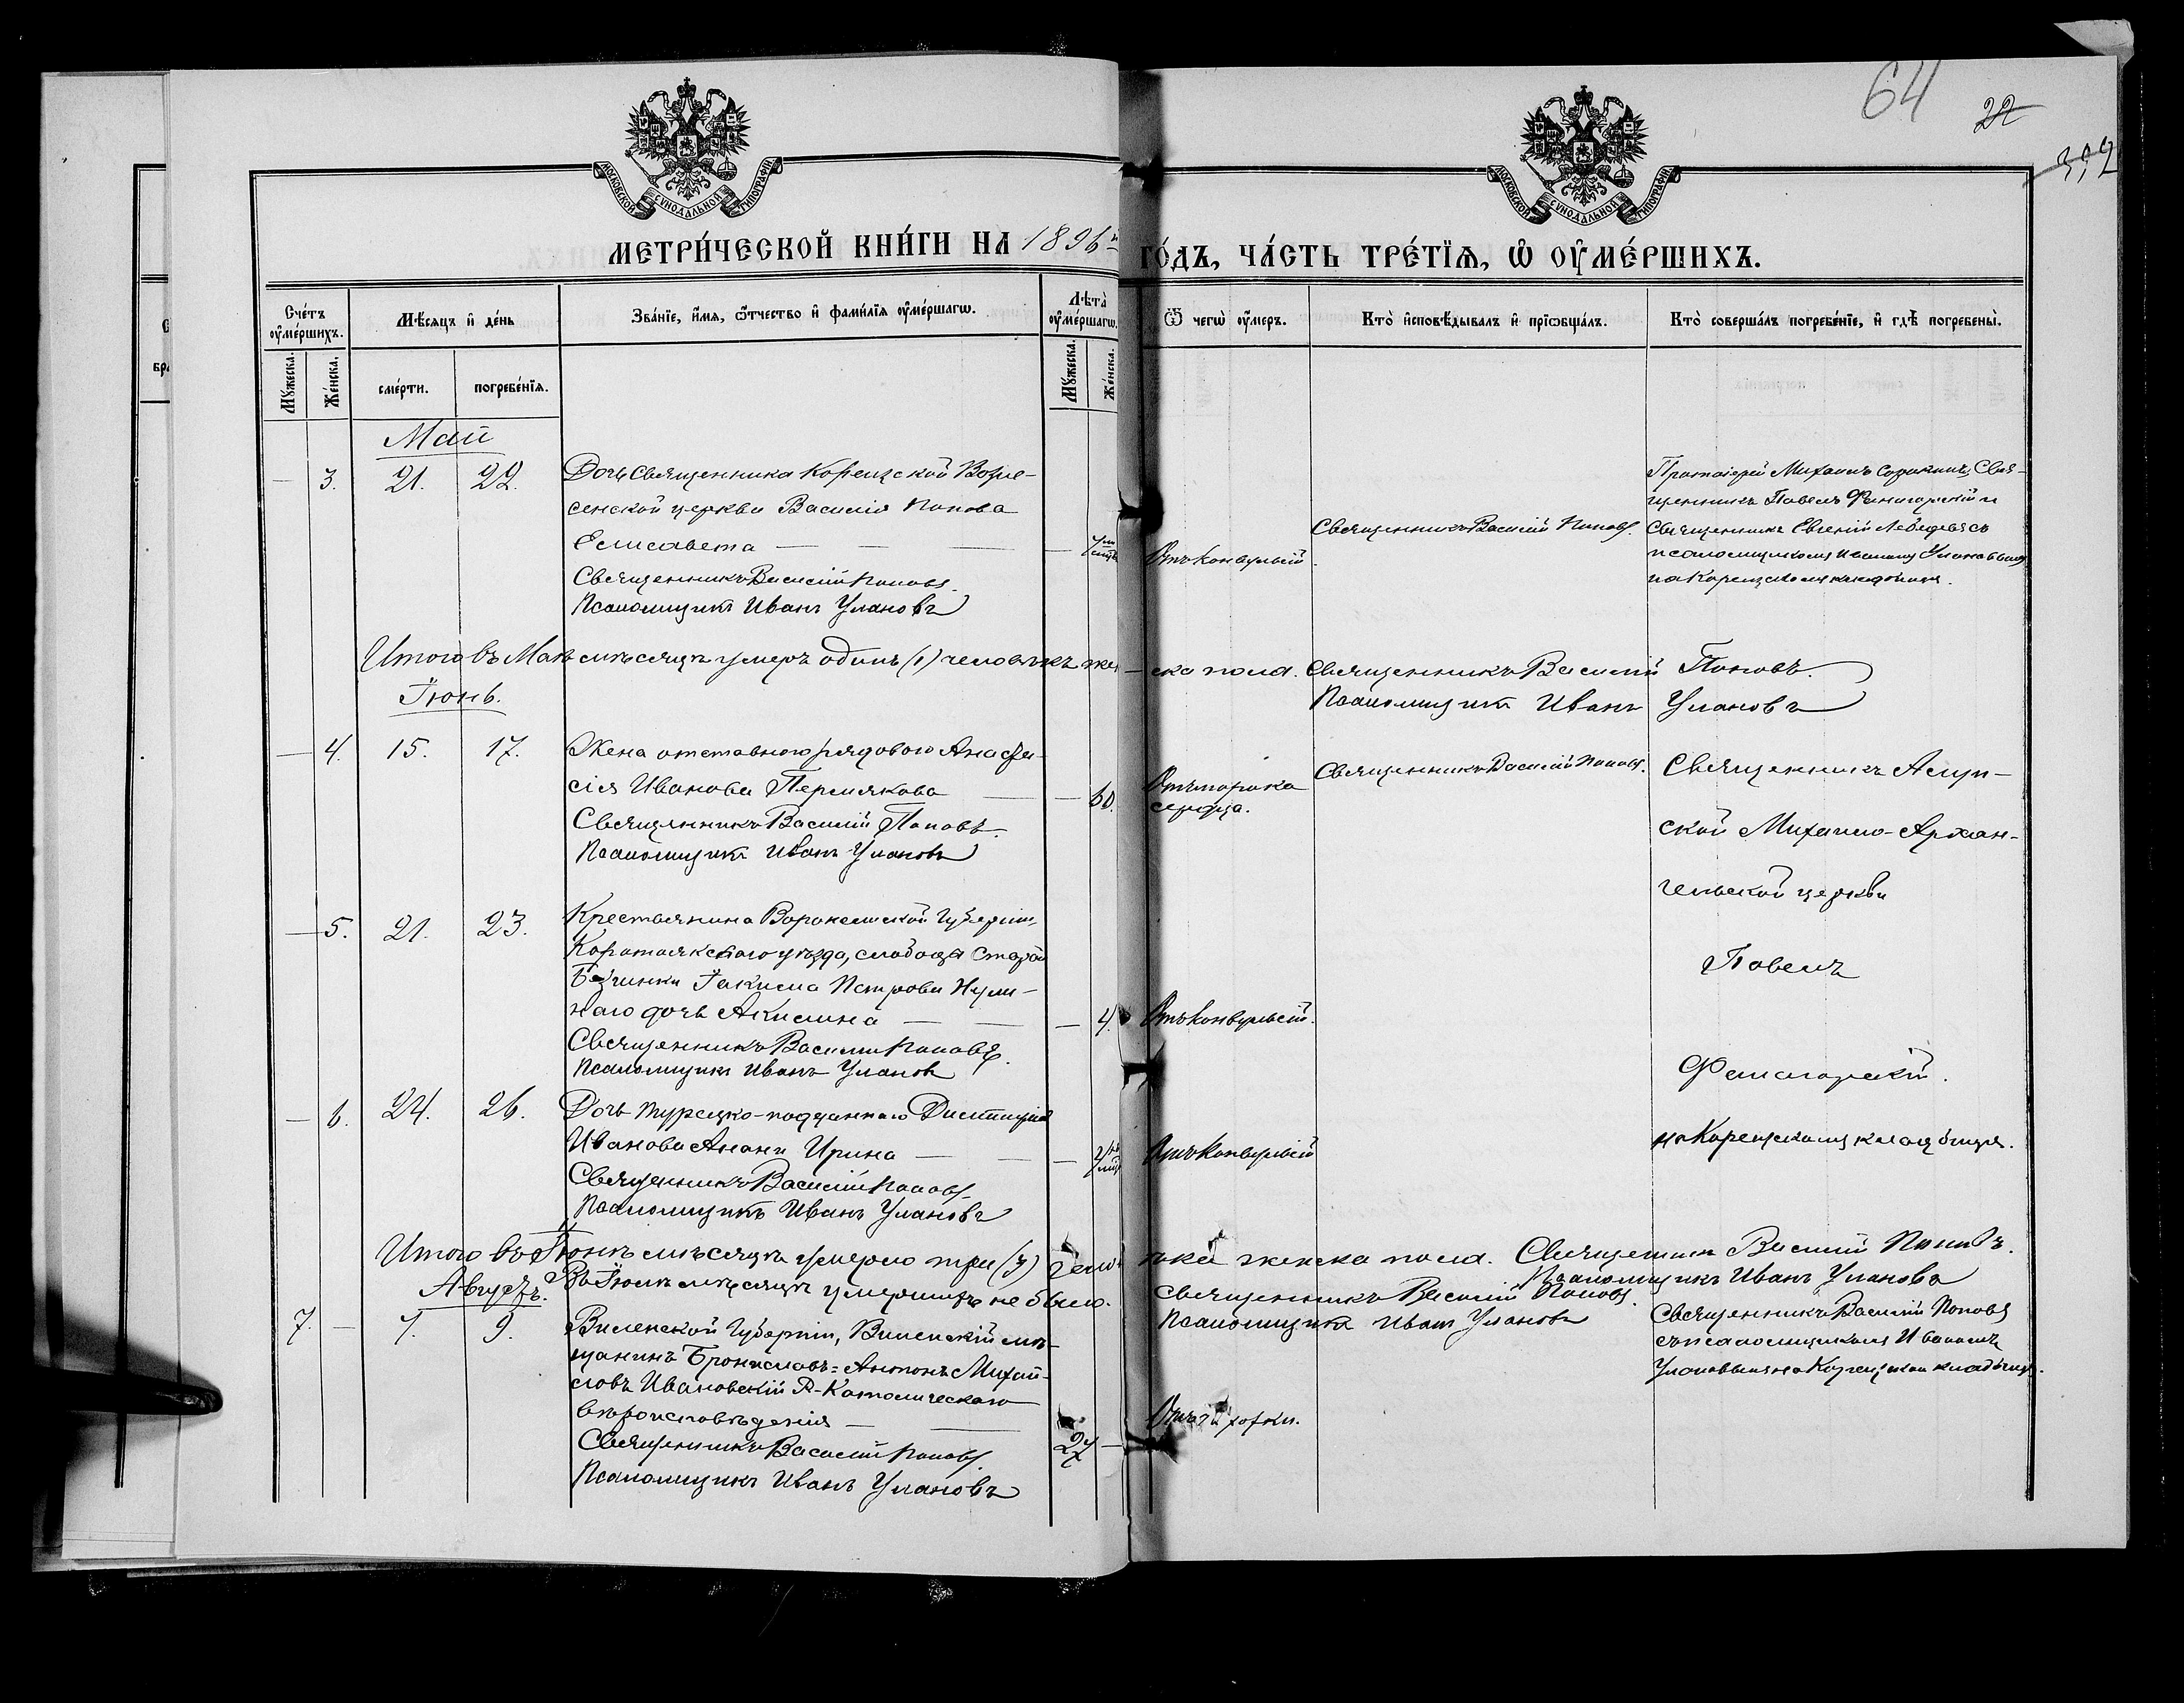 64
22
392
МОСКОВСКОЙ СѴНОДАЛЬНОЙ ТИПОГРАФІИ
МОСКОВСКОЙ СѴНОДАЛЬНОЙ ТИПОГРАФІИ
МЕТРИ́ЧЕСКОЙ КНИ́ГИ НА 1896й ГО́ДЪ, ЧА́СТЬ ТРЕ́ТІѦ, Ѡ ОУ҆МЕ́РШИХЪ.
Сче́тъ оу҆ме́ршихъ.
Мѣ́сяцъ и҆ де́нь
Зва́нїе, и҆́мя, ѻ҆́тчество и҆ фами́лїя оу҆ме́ршагѡ.
Лѣта̀ оу҆ме́ршагѡ.
Ѿ чегѡ̀ оу҆́меръ.
Кто̀ и҆сповѣ́дывалъ и҆ прїѡбща́лъ.
Кто̀ соверша́лъ погребе́нїе, и҆ гдѣ̀ погребены̀.
Мꙋ́жеска.
Же́нска.
сме́рти.
погребе́нїѧ.
Мꙋ́жеска.
Же́нска.
Май
— 3. 21. 22. Дочь Священника Корецской Возне-
сенской церкви Василія Попова
Елисавета — — — —
Священникъ Василій Поповъ.
Псаломщикъ Иванъ Улановъ
Отъ конвульсій.
Священникъ Василій Поповъ.
Протоіерей Михаилъ Сорокинъ, Свя-
щенникъ Павелъ и
Священникъ Евгеній Лебедевъ съ
псаломщикомъ Иваномъ Улановымъ
на Корецскомъ кладбищѣ.
Итого въ Маѣ мѣсяцѣ умеръ одинъ (1) человѣкъ женска пола. Священникъ Василій Поповъ.
Псаломщикъ Иванъ Улановъ
Іюнь.
— 4. 15. 17. Жена отставного рядового Анаста-
сія Иванова Пермякова — — 60.
Священникъ Василій Поповъ.
Псаломщикъ Иванъ Улановъ
Отъ порока
сердца.
Священникъ Василій Поповъ.
Священникъ
ской Михаило-Архан-
гельской церкви
Павелъ
на Корецскомъ кладбищѣ.
— 5. 21. 23. Крестьянина Воронежской Губерніи,
Коротоякскаго уѣзда, слободы Старой
Іакима Петрова
дочь Акилина — — — 4.
Священникъ Василій Поповъ.
Псаломщикъ Иванъ Улановъ
Отъ конвульсій.
— 6. 24. 26. Дочь турецко-подданнаго Димитрія
Иванова Ирина — — —
Священникъ Василій Поповъ
Псаломщикъ Иванъ Улановъ
Отъ конвульсій
Итого въ Іюнѣ мѣсяцѣ умерло три (3) человѣка женска пола. Священникъ Василій Поповъ.
Псаломщикъ Иванъ Улановъ
Въ Іюлѣ мѣсяцѣ умершихъ не было. Священникъ Василій Поповъ.
Псаломщикъ Иванъ Улановъ
Августъ.
7. — 7. 9. Виленской Губерніи, Виленскій мѣ-
щанинъ Брониславъ-Антонъ Михай-
ловъ Ивановскій Р-Католическаго
вѣроисповѣданія — — 27 —
Священникъ Василій Поповъ.
Псаломщикъ Иванъ Улановъ
Отъ чахотки.
Священникъ Василій Поповъ
съ псаломщикомъ Иваномъ
Улановымъ на Корецскомъ кладбищѣ.